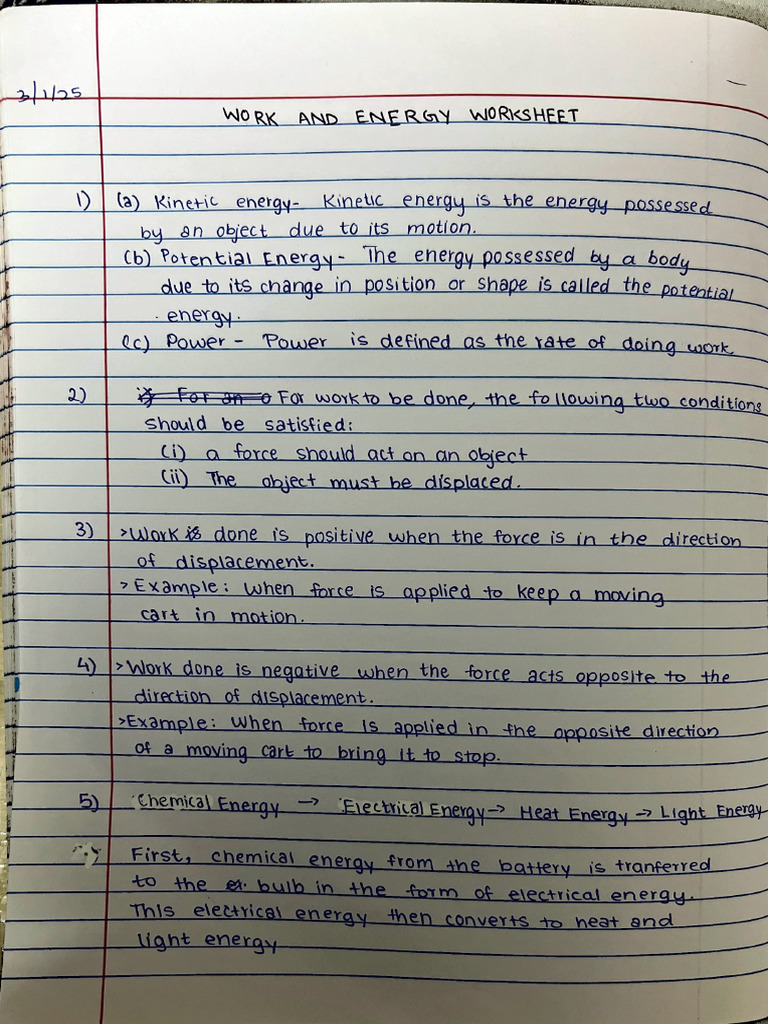 3/1/25
WORK AND ENERGY WORKSHEET
1) (a) Kinetic energy- Kinetic energy is the energy possessed
by an object due to its motion.
(b) Potential Energy - The energy possessed by a body
due to its change in position or shape is called the potential
energy.
(c) Power - Power is defined as the rate of doing work.
2) For work to be done, the following two conditions
should be satisfied:
(i) a force should act on an object
(ii) The object must be displaced.
3) > Work done is positive when the force is in the direction
of displacement.
> Example: When force is applied to keep a moving
cart in motion.
4) > Work done is negative when the force acts opposite to the
direction of displacement.
> Example: When force is applied in the opposite direction
of a moving cart to bring it to stop.
5) Chemical Energy → Electrical Energy → Heat Energy → Light Energy
First, chemical energy from the battery is tranferred
to the bulb in the form of electrical energy.
This electrical energy then converts to heat and
light energy